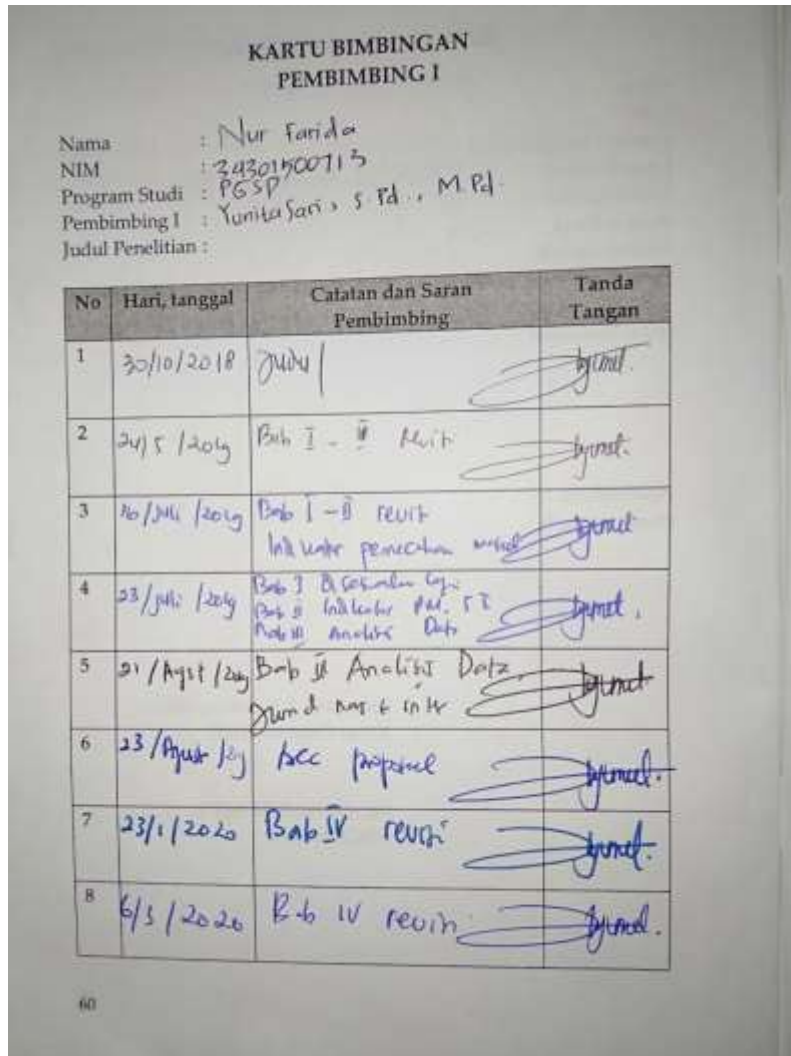 KARTU BIMBINGAN
PEMBIMBING I
Nama : Nur Farida
NIM : 34301500713
Program Studi : PGSD
Pembimbing I : Yunita Sari, S.Pd., M.Pd.
Judul Penelitian :
No Hari, tanggal Catatan dan Saran Pembimbing Tanda Tangan
1 30/10/2018 Judul
2 24/5/2019 Bab I - III
3 16/Juli/2019 Bab I - II revisi
Indikator pemecahan
4 23/Juli/2019 Bab I
Bab II Indikator
Bab III Analisis Data
5 21/Agst/2019 Bab III Analisis Data
6 23/Agust/2019 Acc proposal
7 23/1/2020 Bab IV revisi
8 6/3/2020 Bab IV revisi
60